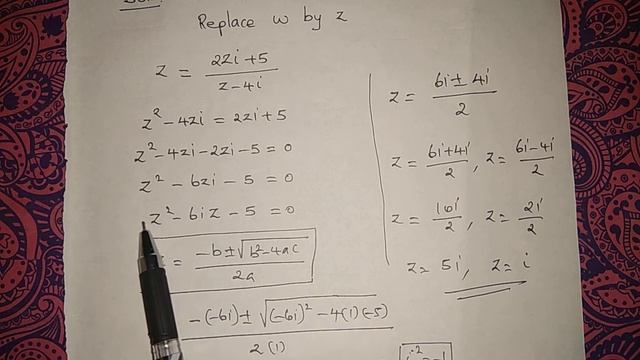 Replace w by z
z = \frac{2zi+5}{z-4i}
z² - 4zi = 2zi + 5
z² - 4zi - 2zi - 5 = 0
z² - 6zi - 5 = 0
z² - 6iz - 5 = 0
= \frac{-b ± \sqrt{b²-4ac}}{2a}
\frac{-(-6i) ± \sqrt{(-6i)² - 4(1)(-5)}}{2(1)}
z = \frac{6i ± 4i}{2}
z = \frac{6i+4i}{2}, z = \frac{6i-4i}{2}
z = \frac{10i}{2}, z = \frac{2i}{2}
z = 5i, z = i
i² = -1